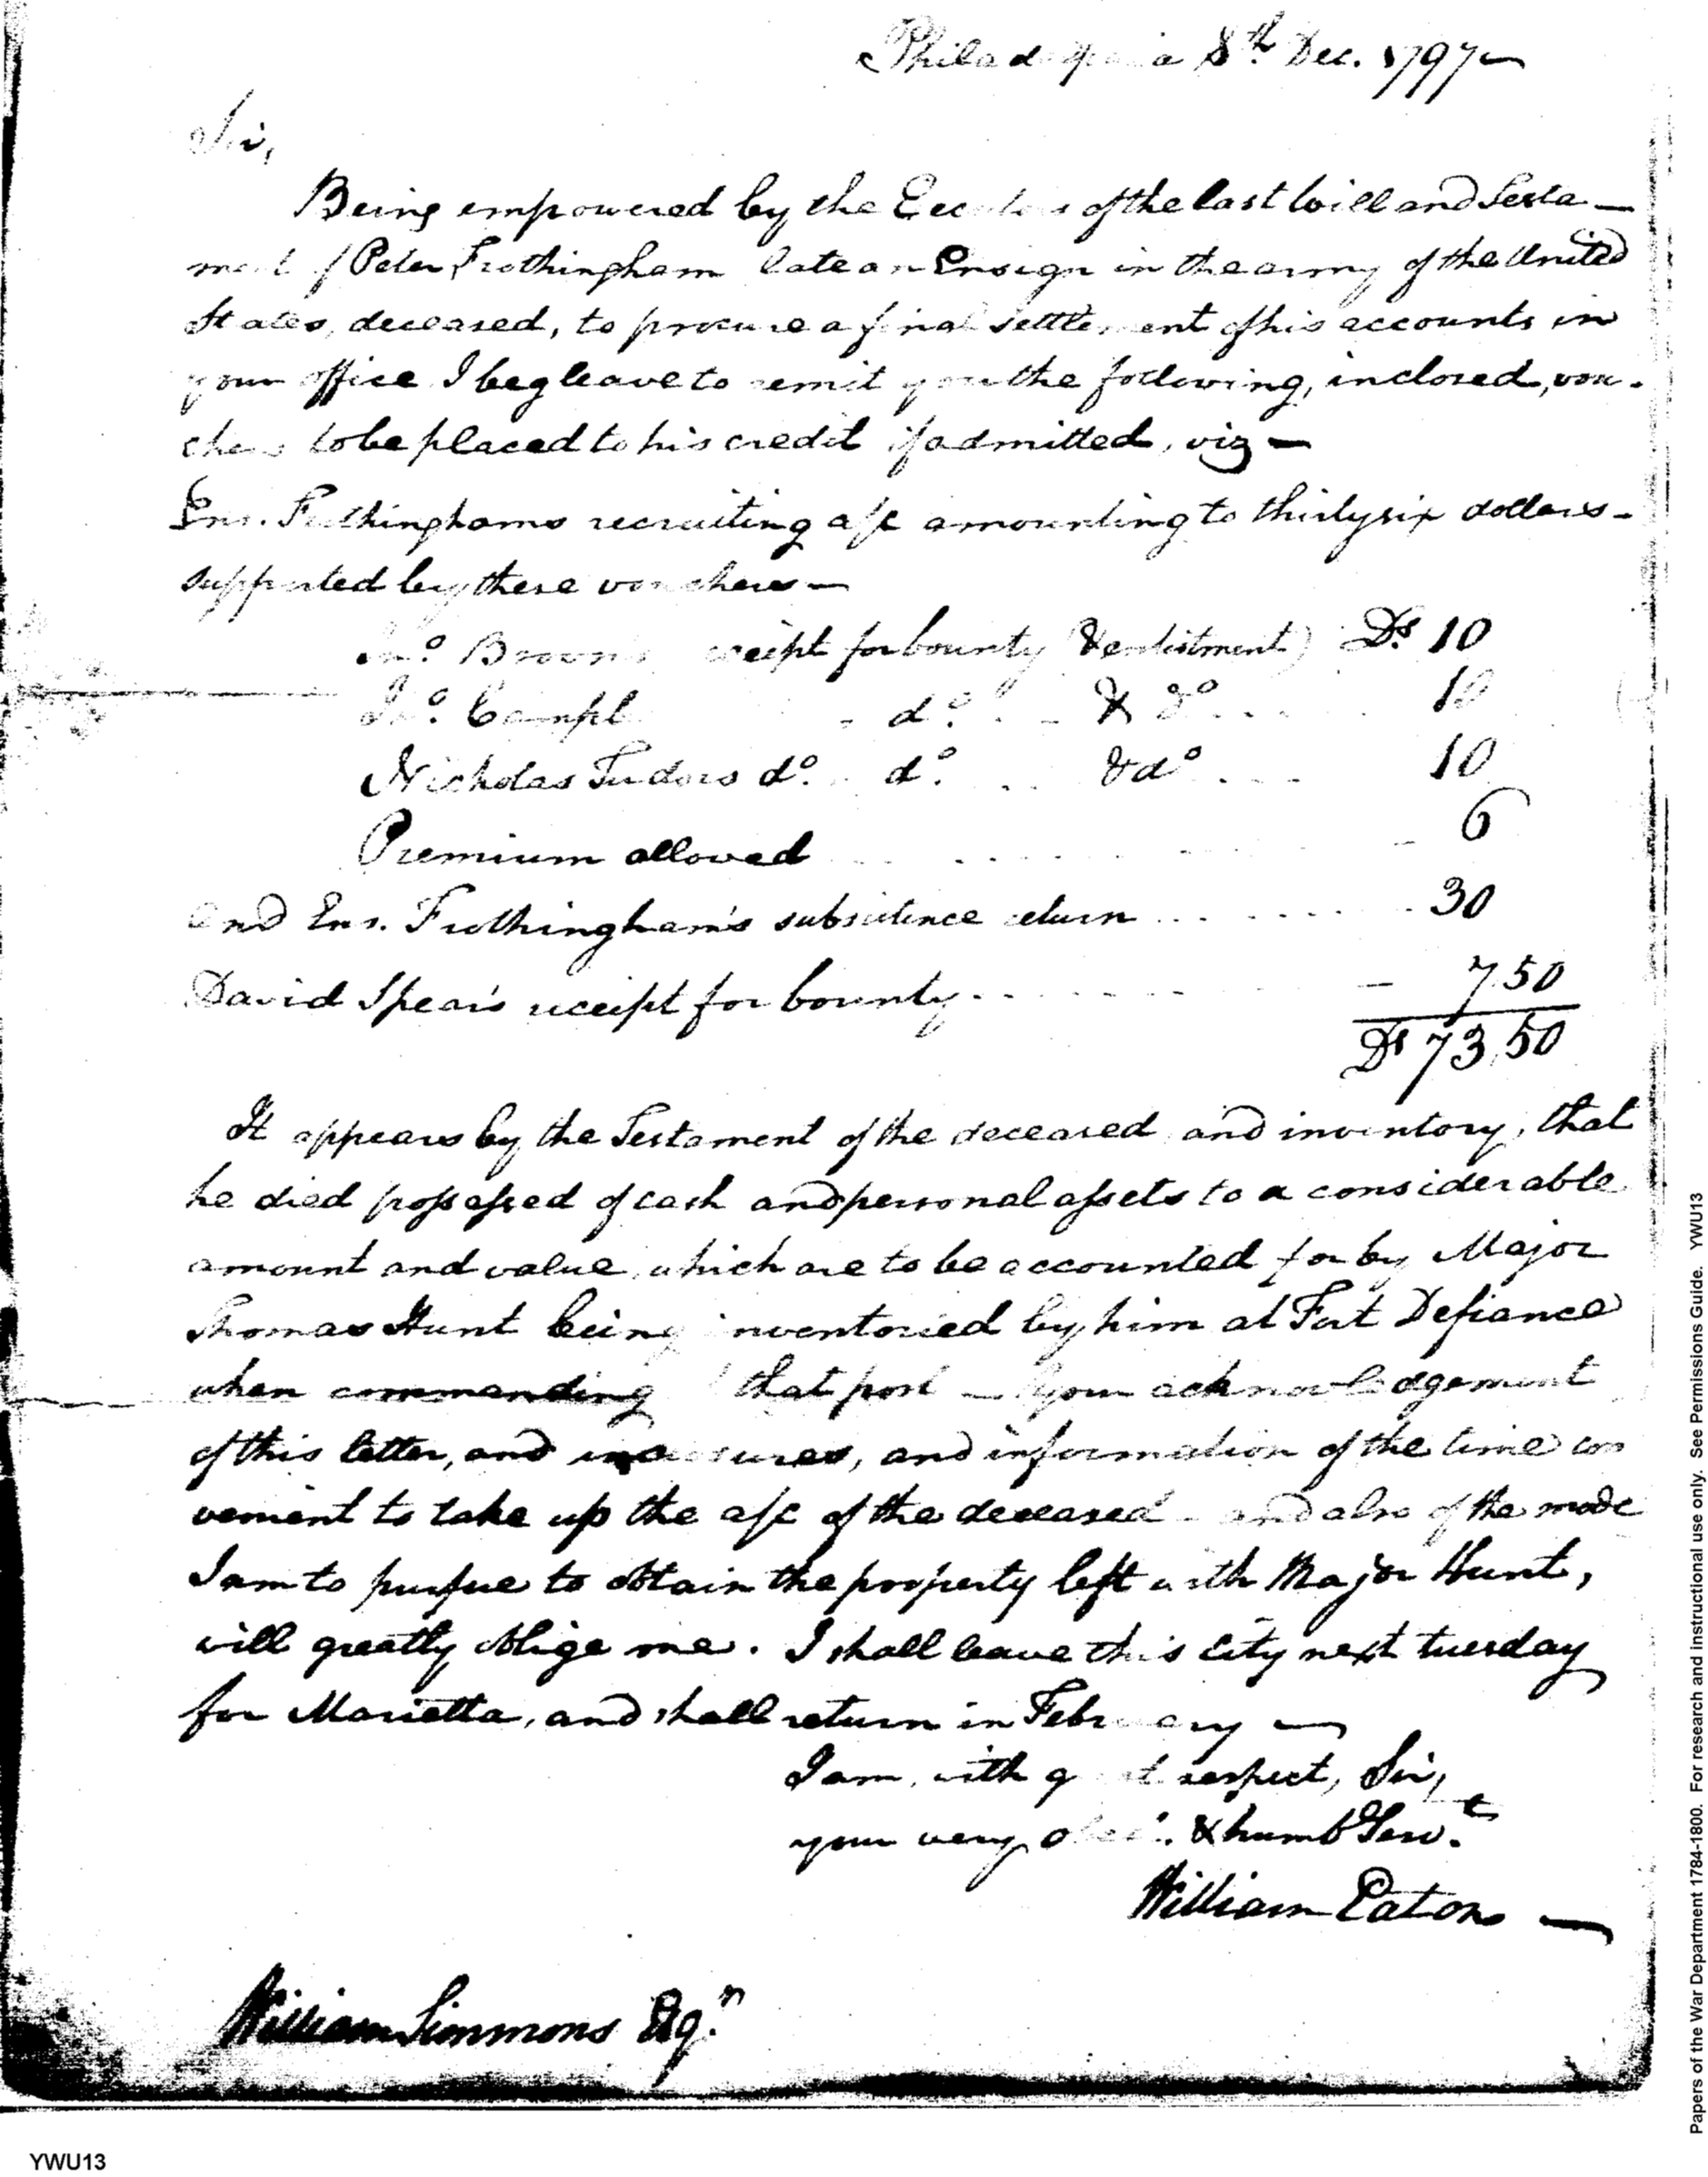 Philadelphia 8th. Dec. 1797
Sir,
Being empowered by the Executors of the last Will and Testa-
ment of Peter Frothingham late an Ensign in the army of the United
States, deceased, to procure a final settlement of his accounts in
your office I beg leave to remit you the following, inclosed, vou-
chers to be placed to his credit if admitted, viz —
Ens. Frothinghams recruiting a/c amounting to thirty six dollars -
supported by these vouchers —
Jno. Browns receipt for bounty & enlistment) Ds. 10
Jno. Campl - do. - & do 10
Nicholas Tudors do. do. & do 10
Premium allowed 6
And Ens. Frothingham's subsistence return 30
David Spear's receipt for bounty - 7.50
Ds 73,50
It appears by the Testament of the deceased and inventory, that
he died possessed of cash and personal assets to a considerable
amount and value, which are to be accounted for by Major
Thomas Hunt being inventoried by him at Fort Defiance
when commanding that post — Your acknowledgement
of this letter, and inclosures, and information of the time con
venient to take up the a/c of the deceased - and also of the mode
I am to pursue to obtain the property left with Major Hunt,
will greatly oblige me. I shall leave this City next tuesday
for Marietta, and shall return in February —
I am, with great respect, Sir,
your very obed. & humb Servt.
William Eaton —
William Simmons Esqr.
YWU13
Papers of the War Department 1784-1800. For research and instructional use only. See Permissions Guide. YWU13